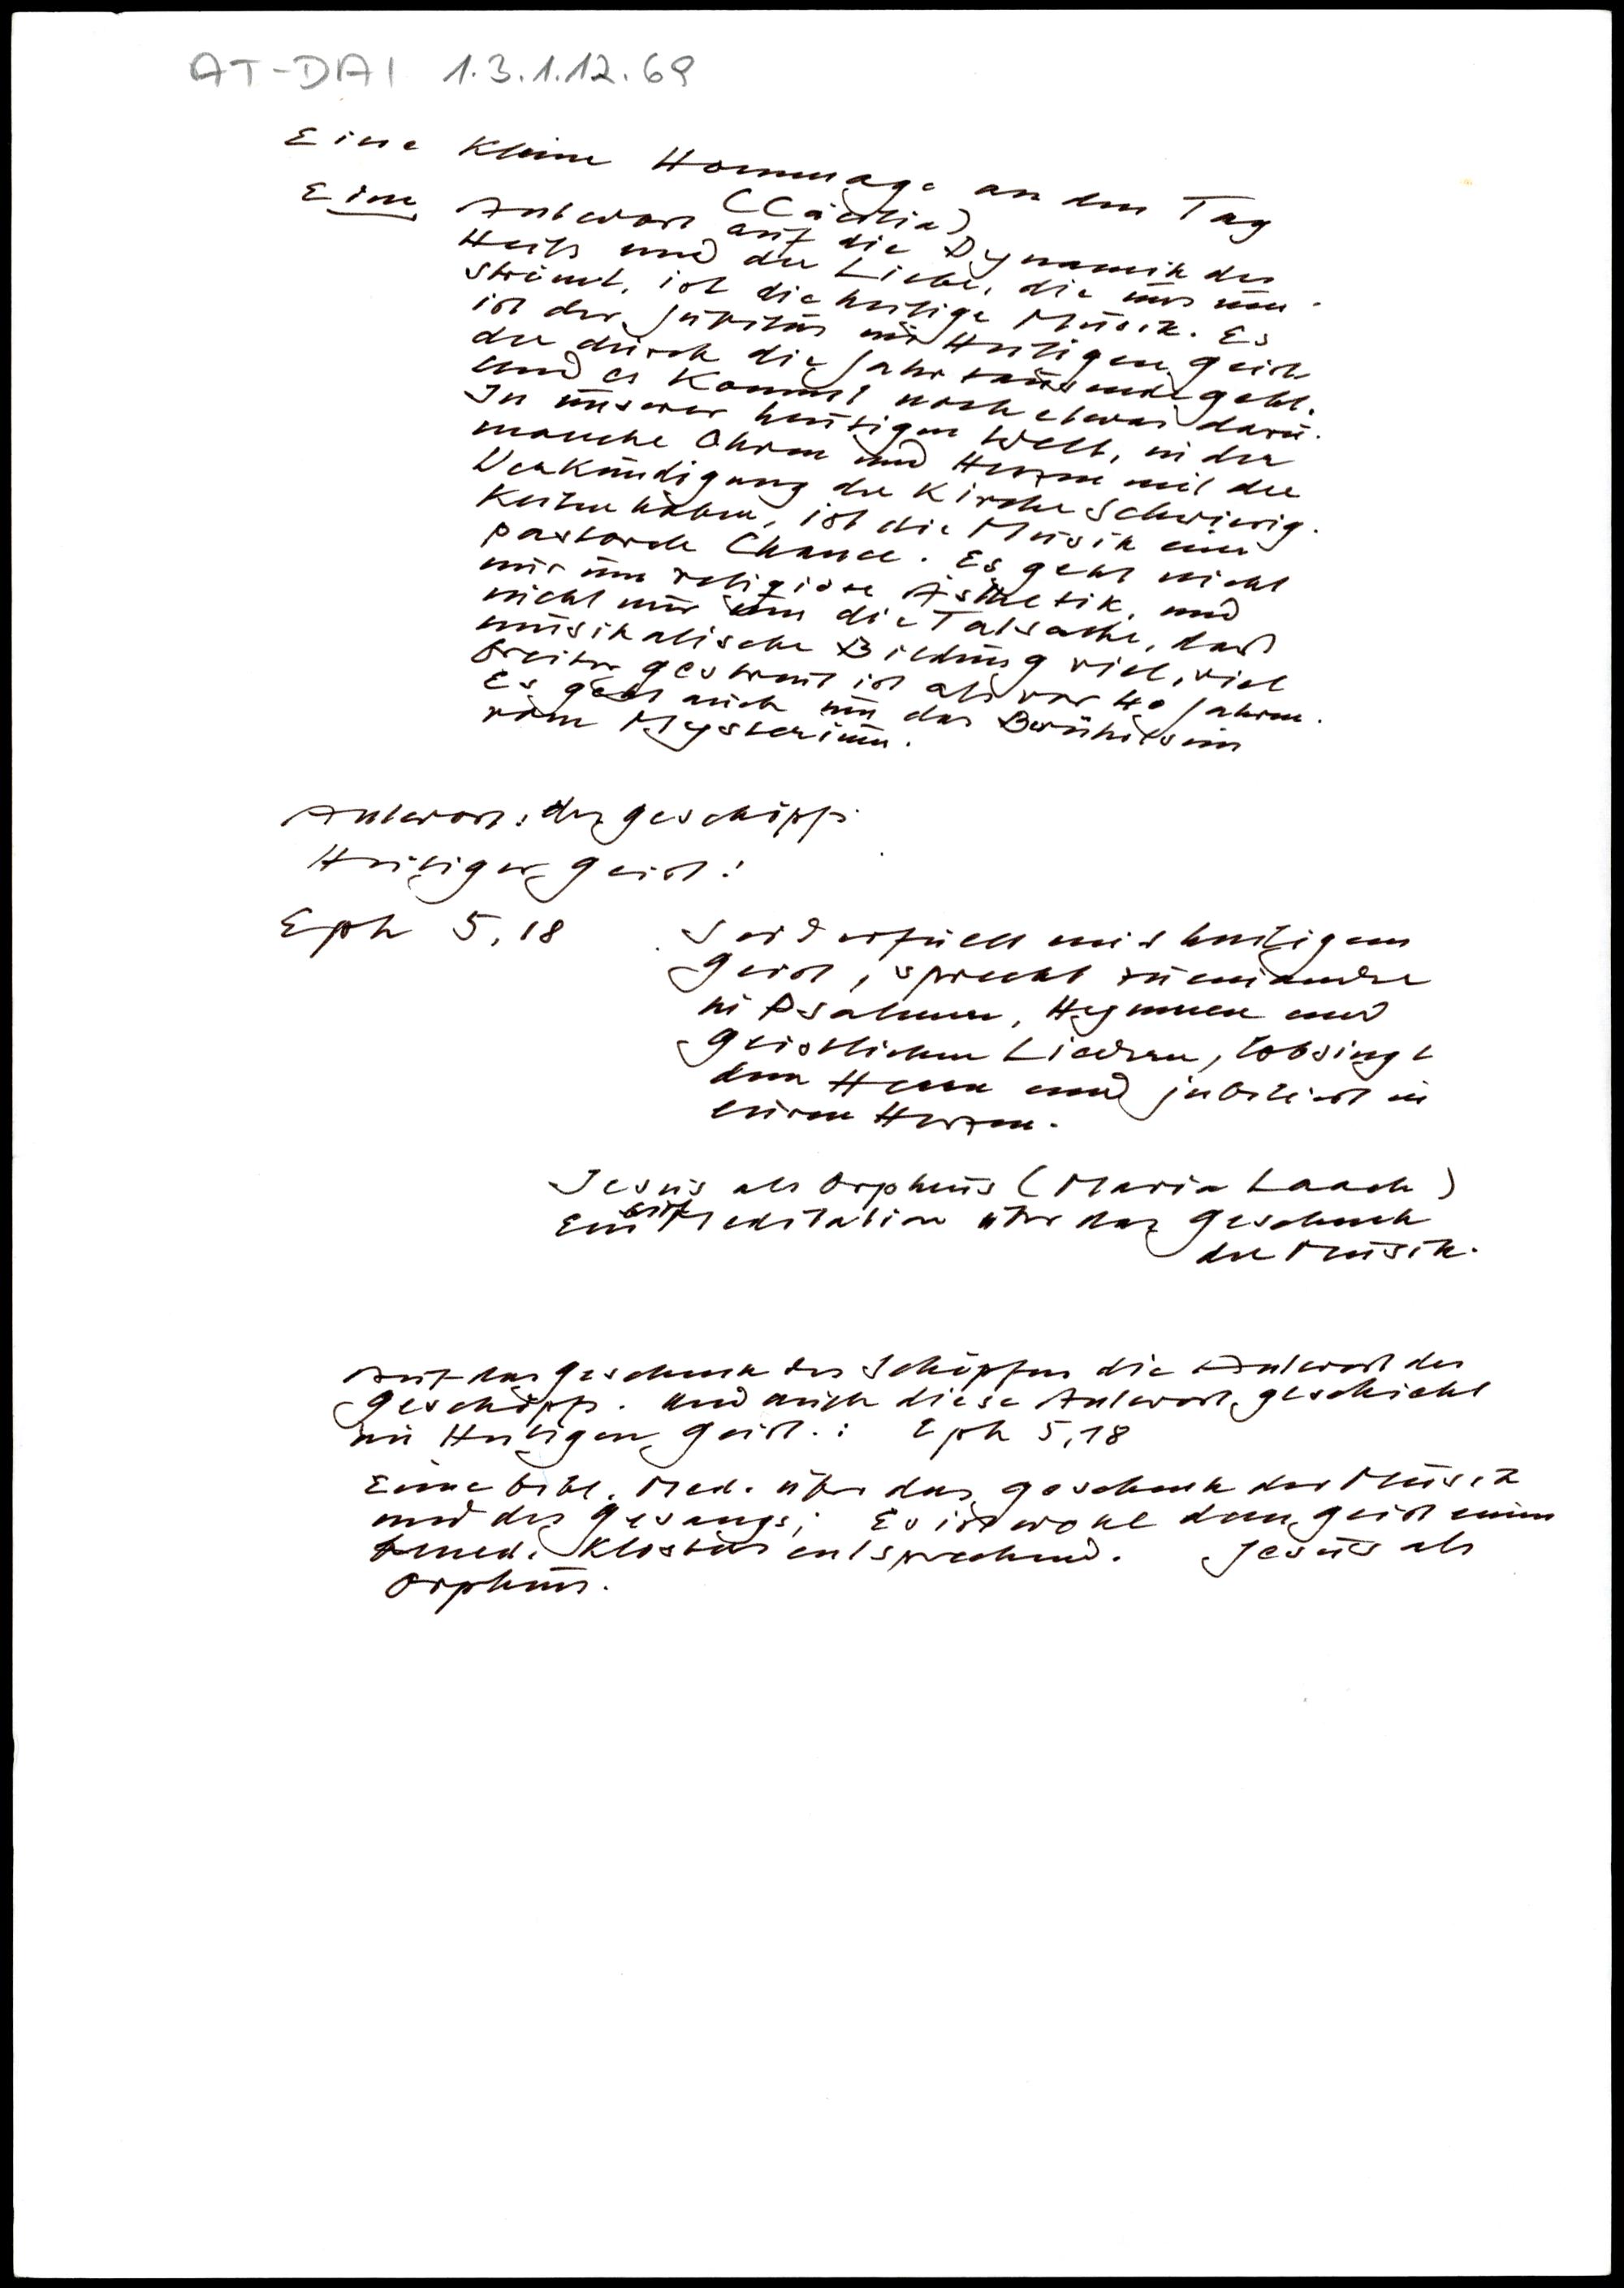 AT-DAI 1.3.1.12.69
Eine kleine Hommage an den Tag
(Cäcilia)
Eine Antwort auf die Dynamik des
Heils und der Liebe, die uns um-
strömt, ist die heilige Musik. Es
ist der Jubilus im Heiligen Geist
der durch die Jahrtausende geht.
Und es kommt noch etwas dazu.
In unserer heutigen Welt, in der
manche Ohren und Herzen mit der
Verkündigung der Kirche Schwierig-
keiten haben, ist die Musik eine
pastorale Chance. Es geht nicht
nur um religiöse Ästhetik, und
nicht nur um die Tatsache, dass
musikalische Bildung viel, viel
breiter gestreut ist als vor 40 Jahren.
Es geht auch um das Berührtsein
vom Mysterium.
Antwort: des Geschöpfs
Heiliger Geist!
Eph 5,18 Seid erfüllt mit heiligem
Geist, sprecht zueinander
in Psalmen, Hymnen und
geistlichen Liedern, lobsingt
dem Herrn und jubiliert in
euren Herzen.
Jesus als Orpheus (Maria Laach)
Eine bibl Meditation über das Geschenk
der Musik.
Auf das Geschenk des Schöpfers die Antwort des
Geschöpfs. Und auch diese Antwort geschieht
im Heiligen Geist.: Eph 5,18
Eine bibl. Med. über das Geschenk der Musik
und des Gesangs; Es ist wohl dem Geist eines
bened. Klosters entsprechend. Jesus als
Orpheus.